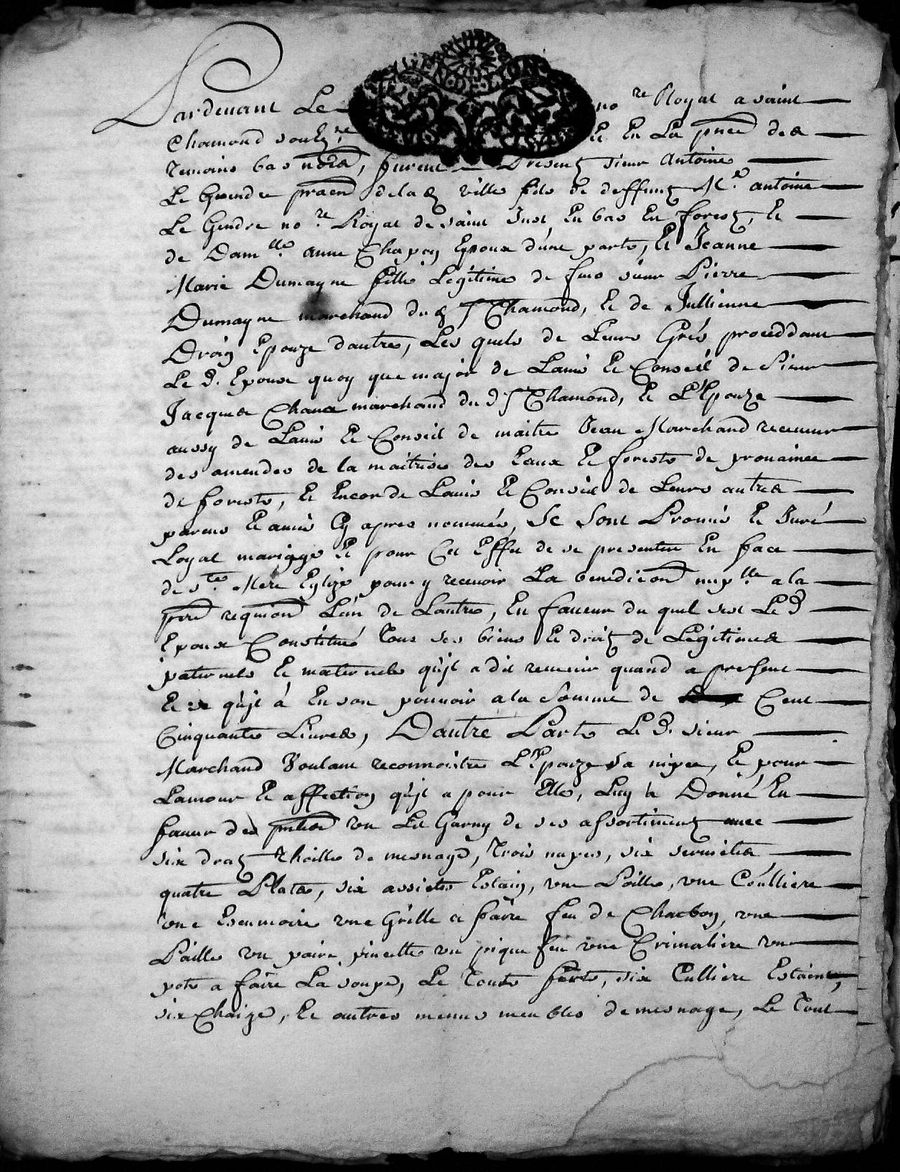 GEN DE LION
Pardevant Le no.re Royal a saint
Chamond soubz.né Et En La pnce des
temoins bas només, furent Presens sieur Antoine
Le Gendre praen de lad ville fils de deffunt M.e antoine
Le Gendre no.re Royal de saint Just En bas En forest, Et
de Dam.lle anne Chapon Epoux d'une parte, Et Jeanne
Marie Dumayne fille Legitime de feu sieur Pierre
Dumayne marchand dud St Chamond, Et de Jullienne
Epouze d'autre, Les quels de Leurs Grés proceddant
Le d. Epoux quoy que majeur de Lauis Et Conseil de Sieur
Jacques marchand du d St Chamond, Et L'Epouze
aussy de Lauis Et Conseil de maitre Jean Marchand receueur
des amendes de la maitrise des Eaux Et forests de prouaince
de forests, Et Encor de Lauis Et Conseil de Leurs autres
parens Et amis Cy apres nommés, Se Sont Promis Et Juré
Loyal mariage Et pour Cet Effet de se presenter En face
de S.te Mere Eglize pour y receuoir La benediction nup.lle a la
pre requion L'un de L'autre, En faueur du quel sest Le d
Epoux Constitué Tous ses biens Et droitz de Legitimes
paternels Et maternels qu'il a dit reuenir quand a present
Et ce qu'il à En son pouuoir a la Somme de Cent
Cinquante Liures, D'autre Parte Le d. sieur
Marchand Voulant reconnoistre L'Epouze sa niepce, Et pour
L'amour Et affection qu'il a pour Elle, Luy à Donné En
faueur des un Lit Garny de ses assortiment auec
six draptz thoille de mesnage, trois napes, six seruiettes
quatre Plats, six assietes Estain, une Poille, une Coulliere
une Escumoire une Grille a faire feu de Charbon, une
Paille un paire pincette un pique feu une Crimaliere un
pots a faire La soupe, Le Touts ferts, six Culliere Estaint,
six Chaize, Et autres menus meubles de mesnage, Le Tout